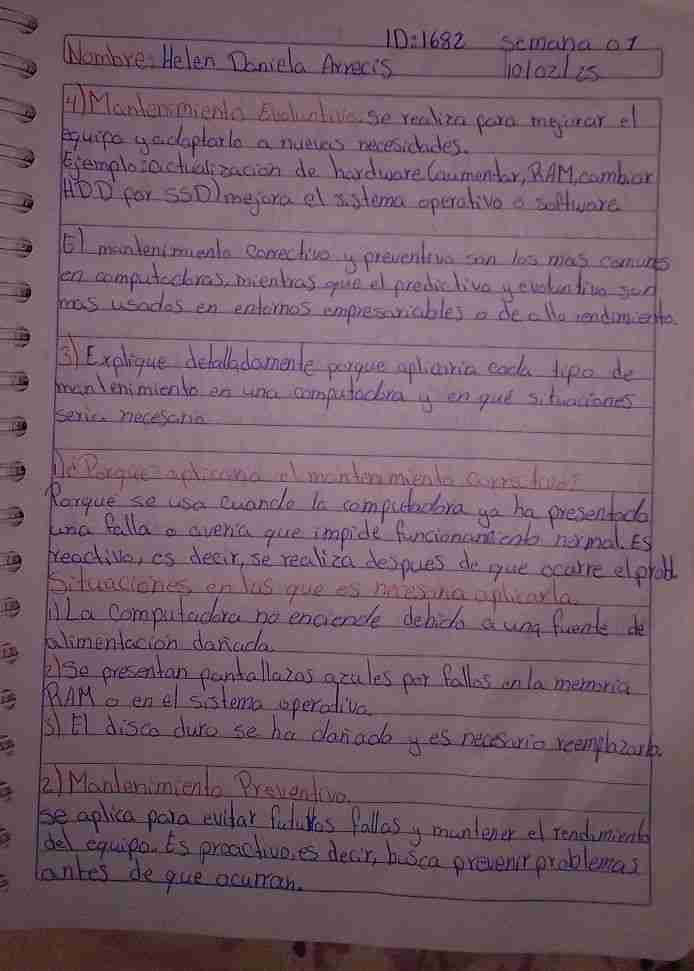 ID:1682 semana 07
Nombre: Helen Daniela Arrecis 10/02/25
4) Mantenimiento Evolutivo. se realiza para mejorar el
equipo y adaptarlo a nuevas necesidades.
Ejemplo: actualización de hardware (aumentar, RAM, cambiar
HDD por SSD) mejora el sistema operativo o software
El mantenimiento correctivo y preventivo son los mas comunes
en computadoras, mientras que el predictivo y evolutivo son
mas usados en entornos empresariables o de alto rendimiento.
3) Explique detalladamente porque aplicaria cada tipo de
mantenimiento en una computadora y en qué situaciones
seria necesario
1) ¿Porque aplicaria el mantenimiento correctivo?
Porque se usa cuando la computadora ya ha presentado
una falla o averia que impide funcionamiento normal. Es
reactivo, es decir, se realiza despues de que ocurre el probl.
Situaciones en las que es necesaria aplicarla.
1) La computadora no enciende debido a una fuente de
alimentacion dañada.
2) Se presentan pantallazos azules por fallos en la memoria
RAM o en el sistema operativo.
3) El disco duro se ha dañado y es necesario reemplazarlo.
2) Mantenimiento Preventivo.
se aplica para evitar futuros fallas y mantener el rendimiento
del equipo. Es proactivo, es decir, busca prevenir problemas
antes de que ocurran.